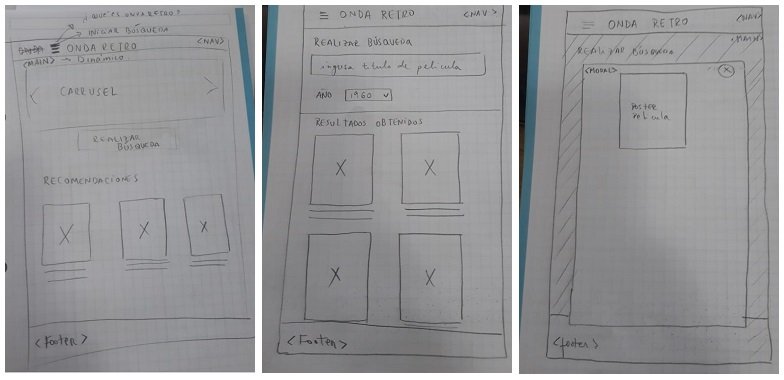 ¿ QUE ES ONDA RETRO?
INICIAR BÚSQUEDA
ONDA RETRO
<NAV>
<MAIN> → Dinámico
CARRUSEL
REALIZAR
BÚSQUEDA
RECOMENDACIONES
X X X
<Footer>
ONDA RETRO
<NAV>
REALIZAR BÚSQUEDA
ingrese título de película
AÑO 1960
RESULTADOS OBTENIDOS
X X
X X
<Footer>
ONDA RETRO
<NAV>
<MAIN>
REALIZAR BÚSQUEDA
<MODAL>
X
POSTER
PELICULA
<footer>